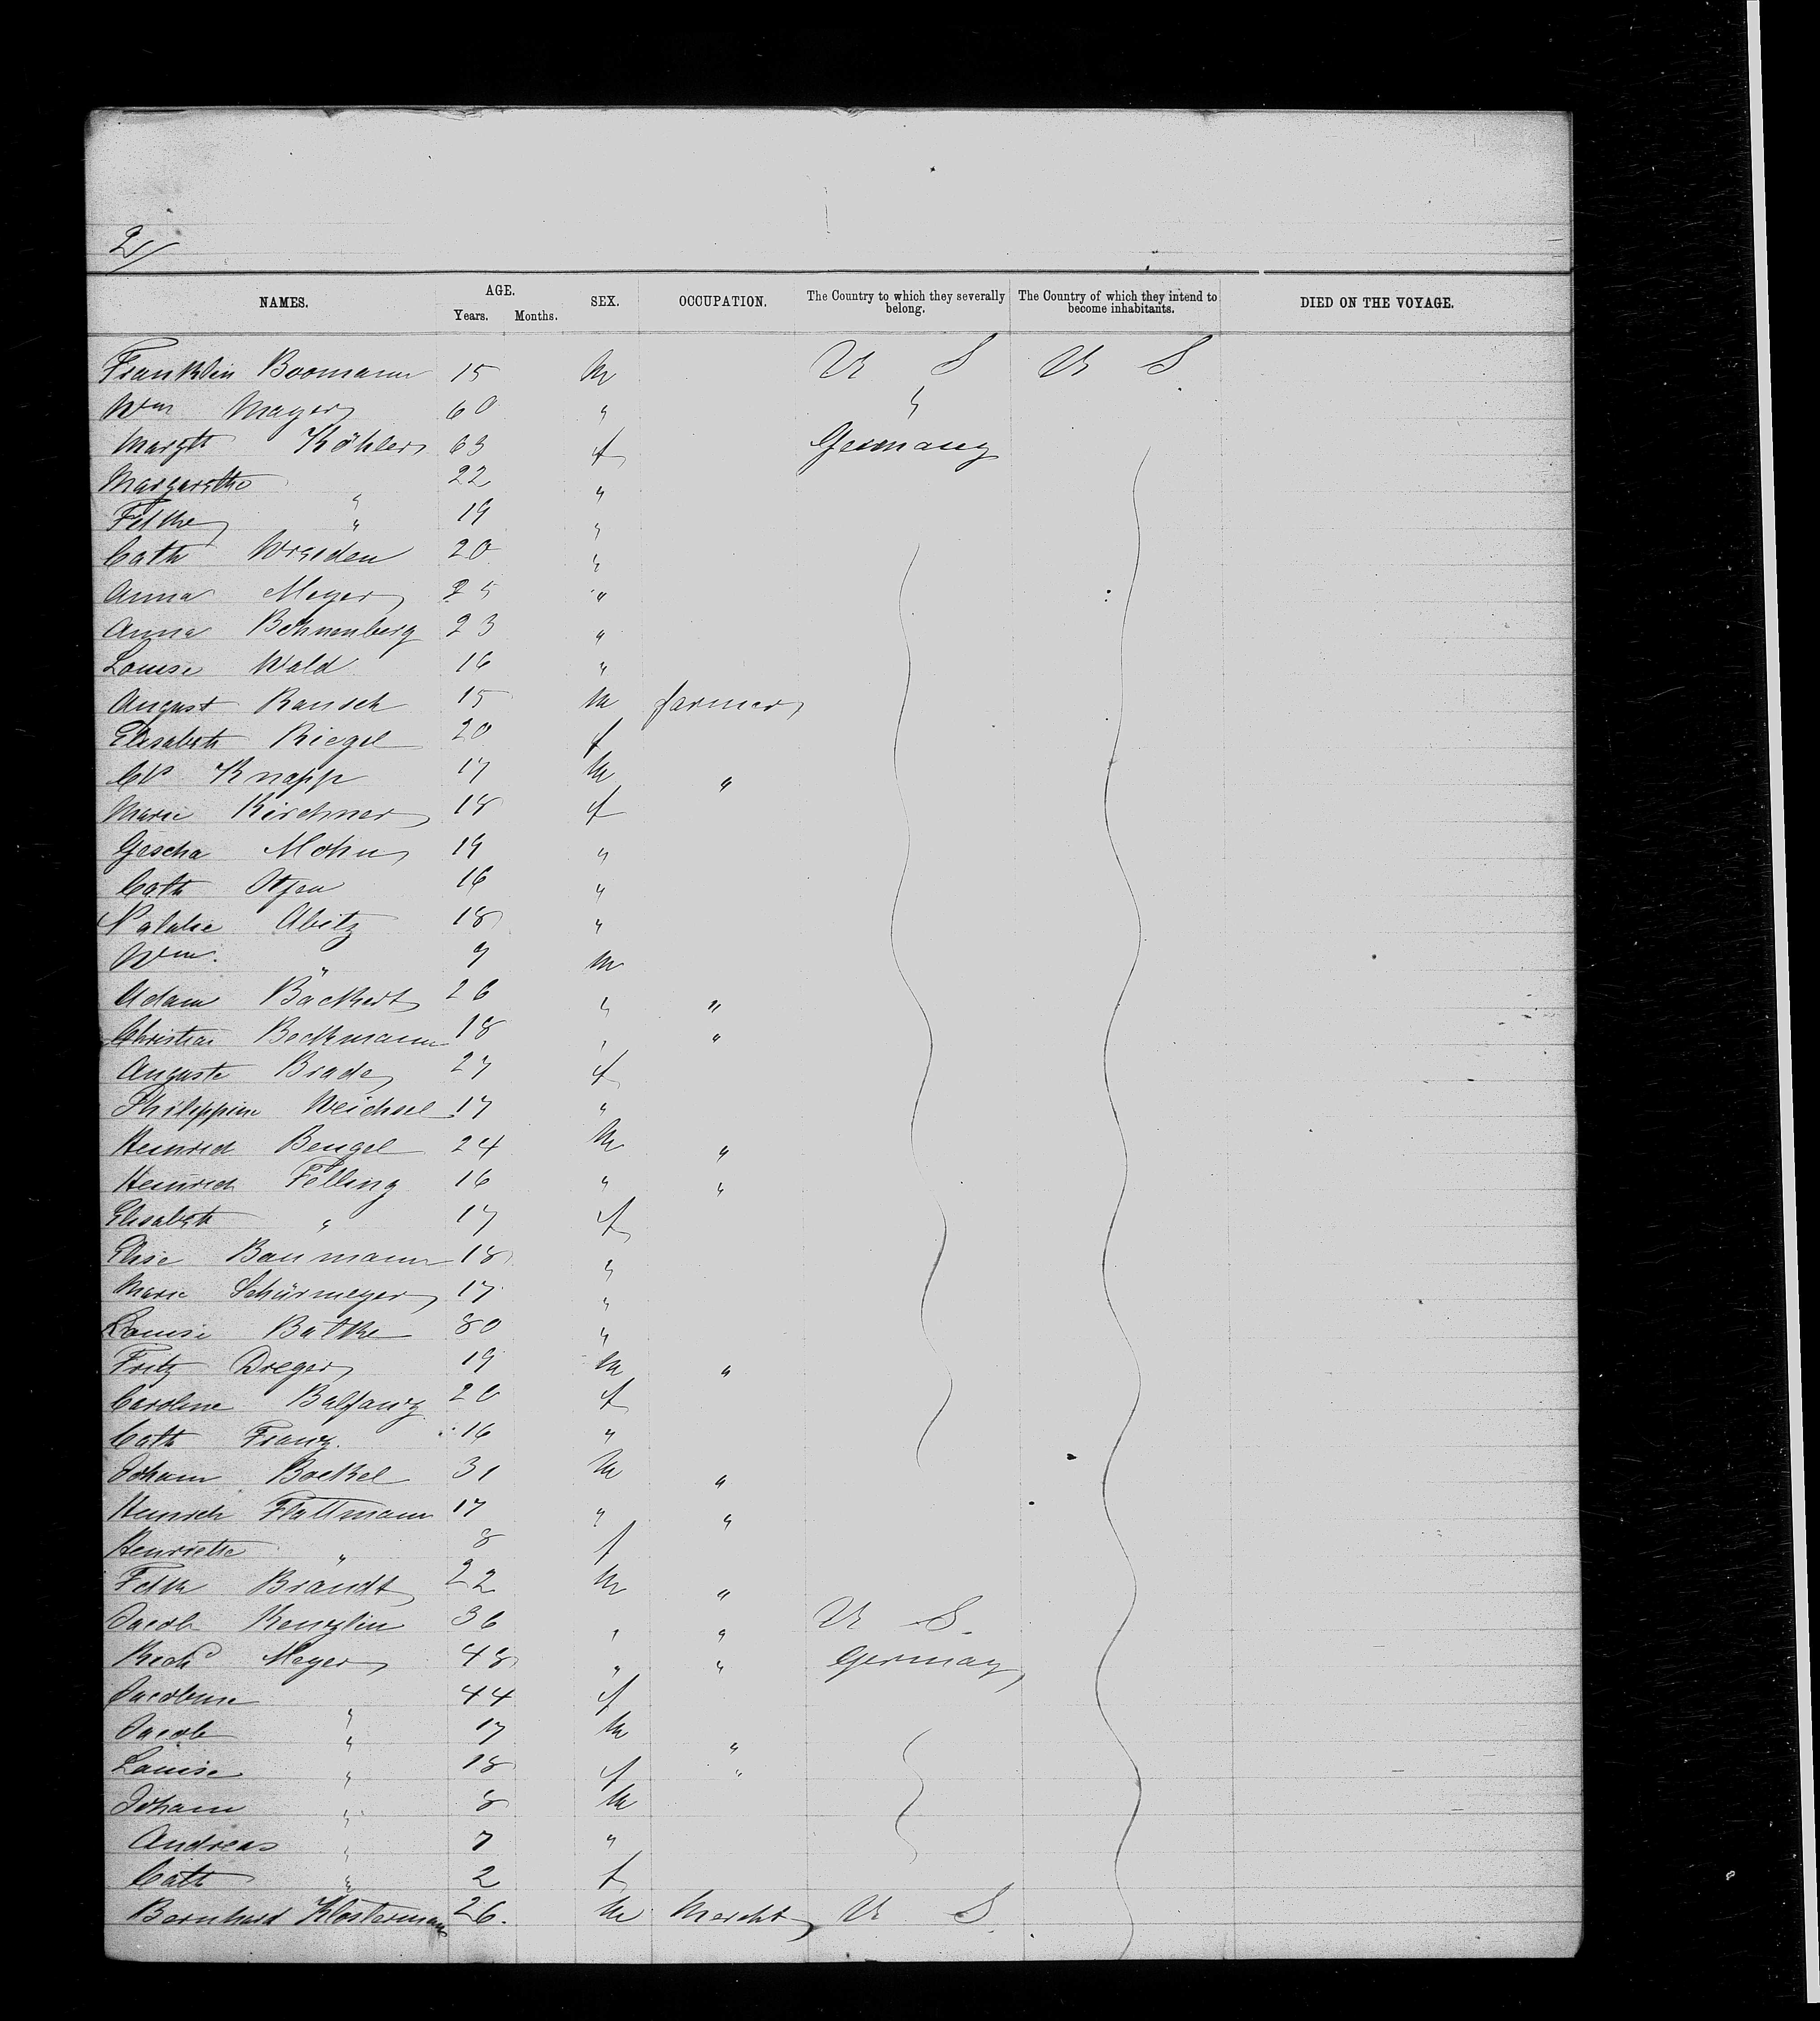 2/
NAMES. AGE. Years. Months. SEX. OCCUPATION. The Country to which they severally belong. The Country of which they intend to become inhabitants. DIED ON THE VOYAGE.
Franklin Boomann 15 m U S U S
Wm Mayer 60 " "
Margth Köhler 63 f Germany
Margarethe " 22 "
Fdke " 19 "
Cath Wreden 20 "
Anna Meyer 25 "
Anna 23 "
Louise Wald 16 "
August Rausch 15 m farmer
Elisabeth Riegel 20 f
Knapp 17 m "
Marie Kirchner 18 f
Gescha Mohn 19 "
Cath Otjen 16 "
Natalie Abitz 18 "
Wm. " 9 m
Adam Bäckert 26 " "
Christian Beckmann 18 " "
Auguste Brade 27 f
Philippine Weichsel 17 "
Heinrich Bengel 24 m "
Heinrich Felling 16 " "
Elisabeth " 17 f
Elise Baumann 18 "
Marie Schürmeyer 17 "
Louise Batke "
Fritz Dreger 19 m "
Caroline Balfanz 20 f
Cath Franz. 16 "
Johann Boekel 31 m "
Heinrich Flattmann 17 " "
Henriette " 8 f
Fdk Brandt 22 m "
Jacob Kenzlin 36 " " U S.
Richd Meyer 48 " " Germany
Jacobine " 44 f
Jacob " 17 m "
Louise " 18 f "
Johann " 8 m
Andreas " 7 "
Cath " 2 f
Bernhard Klostermann 26. m Mercht U S.